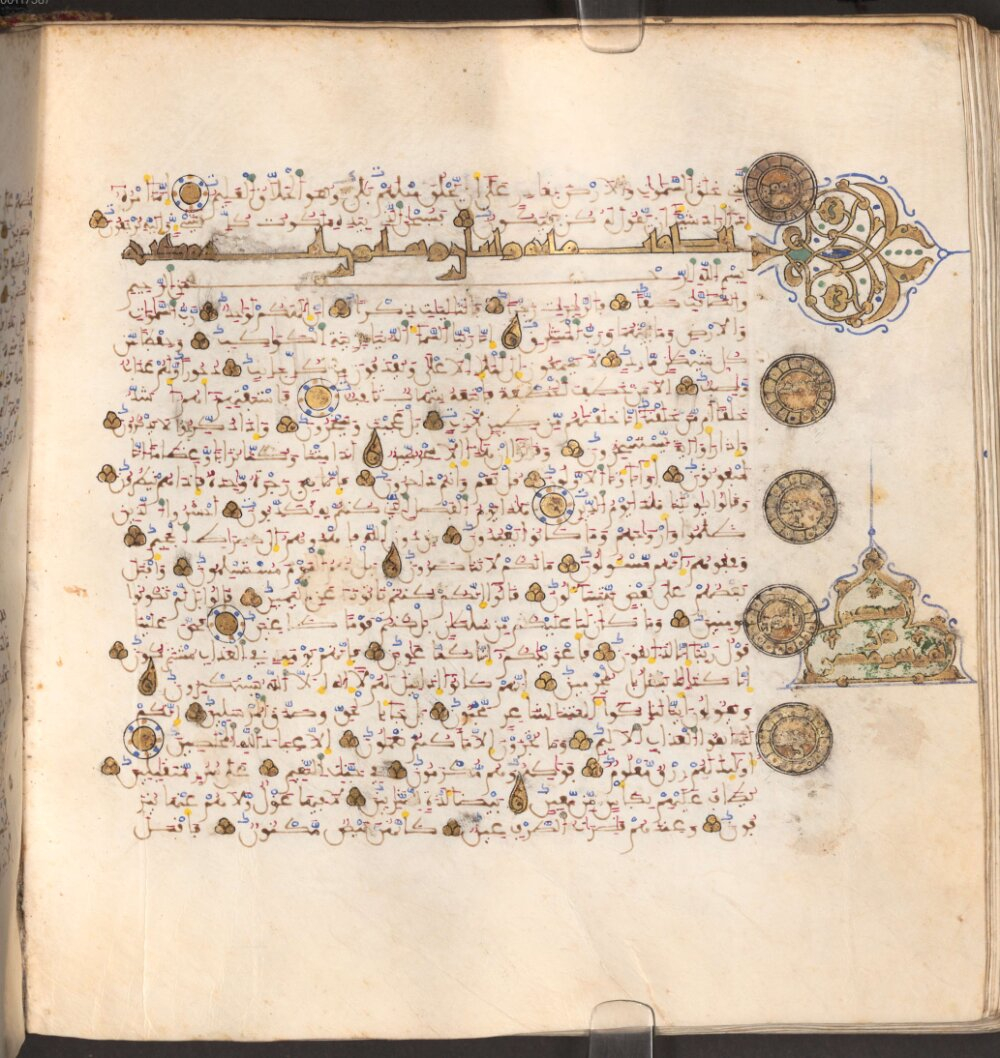 خلق السموت والارض بقدر على ان يخلق مثلهم بلى وهو الخلق العليم انما امره
اذا اراد شيئا ان يقول له كن فيكون فسبحن الذي بيده ملكوت كل شيء واليه ترجعون
مائة
بسم الله الرحمن الرحيم
والصفت صفا فالزجرت زجرا فالتليت ذكرا ان الهكم لوحد رب السموت
والارض وما بينهما ورب المشرق انا زينا السماء الدنيا بزينة الكواكب وحفظا من
كل شيطن مارد لا يسمعون الى الملإ الاعلى ويقذفون من كل جانب دحورا ولهم عذاب
واصب الا من خطف الخطفة فاتبعه شهاب ثاقب فاستفتهم اهم اشد
خلقا ام من خلقنا انا خلقنهم من طين لازب بل عجبت ويسخرون واذا ذكروا لا يذكرون
واذا راوا اية يستسخرون وقالوا ان هذا الا سحر مبين اذا متنا وكنا ترابا وعظما انا
لمبعوثون او اباونا الاولون قل نعم وانتم دخرون فانما هي زجرة وحدة فاذا هم ينظرون
وقالوا يويلنا هذا يوم الدين هذا يوم الفصل الذي كنتم به تكذبون احشروا الذين
ظلموا وازوجهم وما كانوا يعبدون من دون الله فاهدوهم الى صرط الجحيم
وقفوهم انهم مسئولون ما لكم لا تناصرون بل هم اليوم مستسلمون واقبل
بعضهم على بعض يتساءلون قالوا انكم كنتم تاتوننا عن اليمين قالوا بل لم تكونوا
مومنين وما كان لنا عليكم من سلطن بل كنتم قوما طغين فحق علينا
قول ربنا انا لذائقون فاغوينكم انا كنا غوين فانهم يومئذ في العذاب مشتركون
انا كذلك نفعل بالمجرمين انهم كانوا اذا قيل لهم لا اله الا الله يستكبرون
ويقولون ائنا لتاركوا الهتنا لشاعر مجنون بل جاء بالحق وصدق المرسلين انكم
لذائقوا العذاب الاليم وما تجزون الا ما كنتم تعملون الا عباد الله المخلصين
اولئك لهم رزق معلوم فوكه وهم مكرمون في جنت النعيم على سرر متقبلين
يطاف عليهم بكاس من معين بيضاء لذة للشربين لا فيها غول ولا هم عنها ينز
فون وعندهم قصرت الطرف عين كانهن بيض مكنون فاقبل